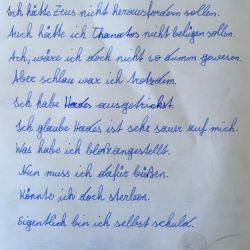 Ich hätte Zeus nicht herausfordern sollen.
Auch hätte ich Thanatos nicht belügen sollen.
Ach, wäre ich doch nicht so dumm gewesen.
Aber schlau war ich trotzdem.
Ich habe Hades ausgetrickst.
Ich glaube Hades ist sehr sauer auf mich.
Was habe ich bloß angestellt.
Nun muss ich dafür büßen.
Könnte ich doch sterben.
Eigentlich bin ich selbst schuld.